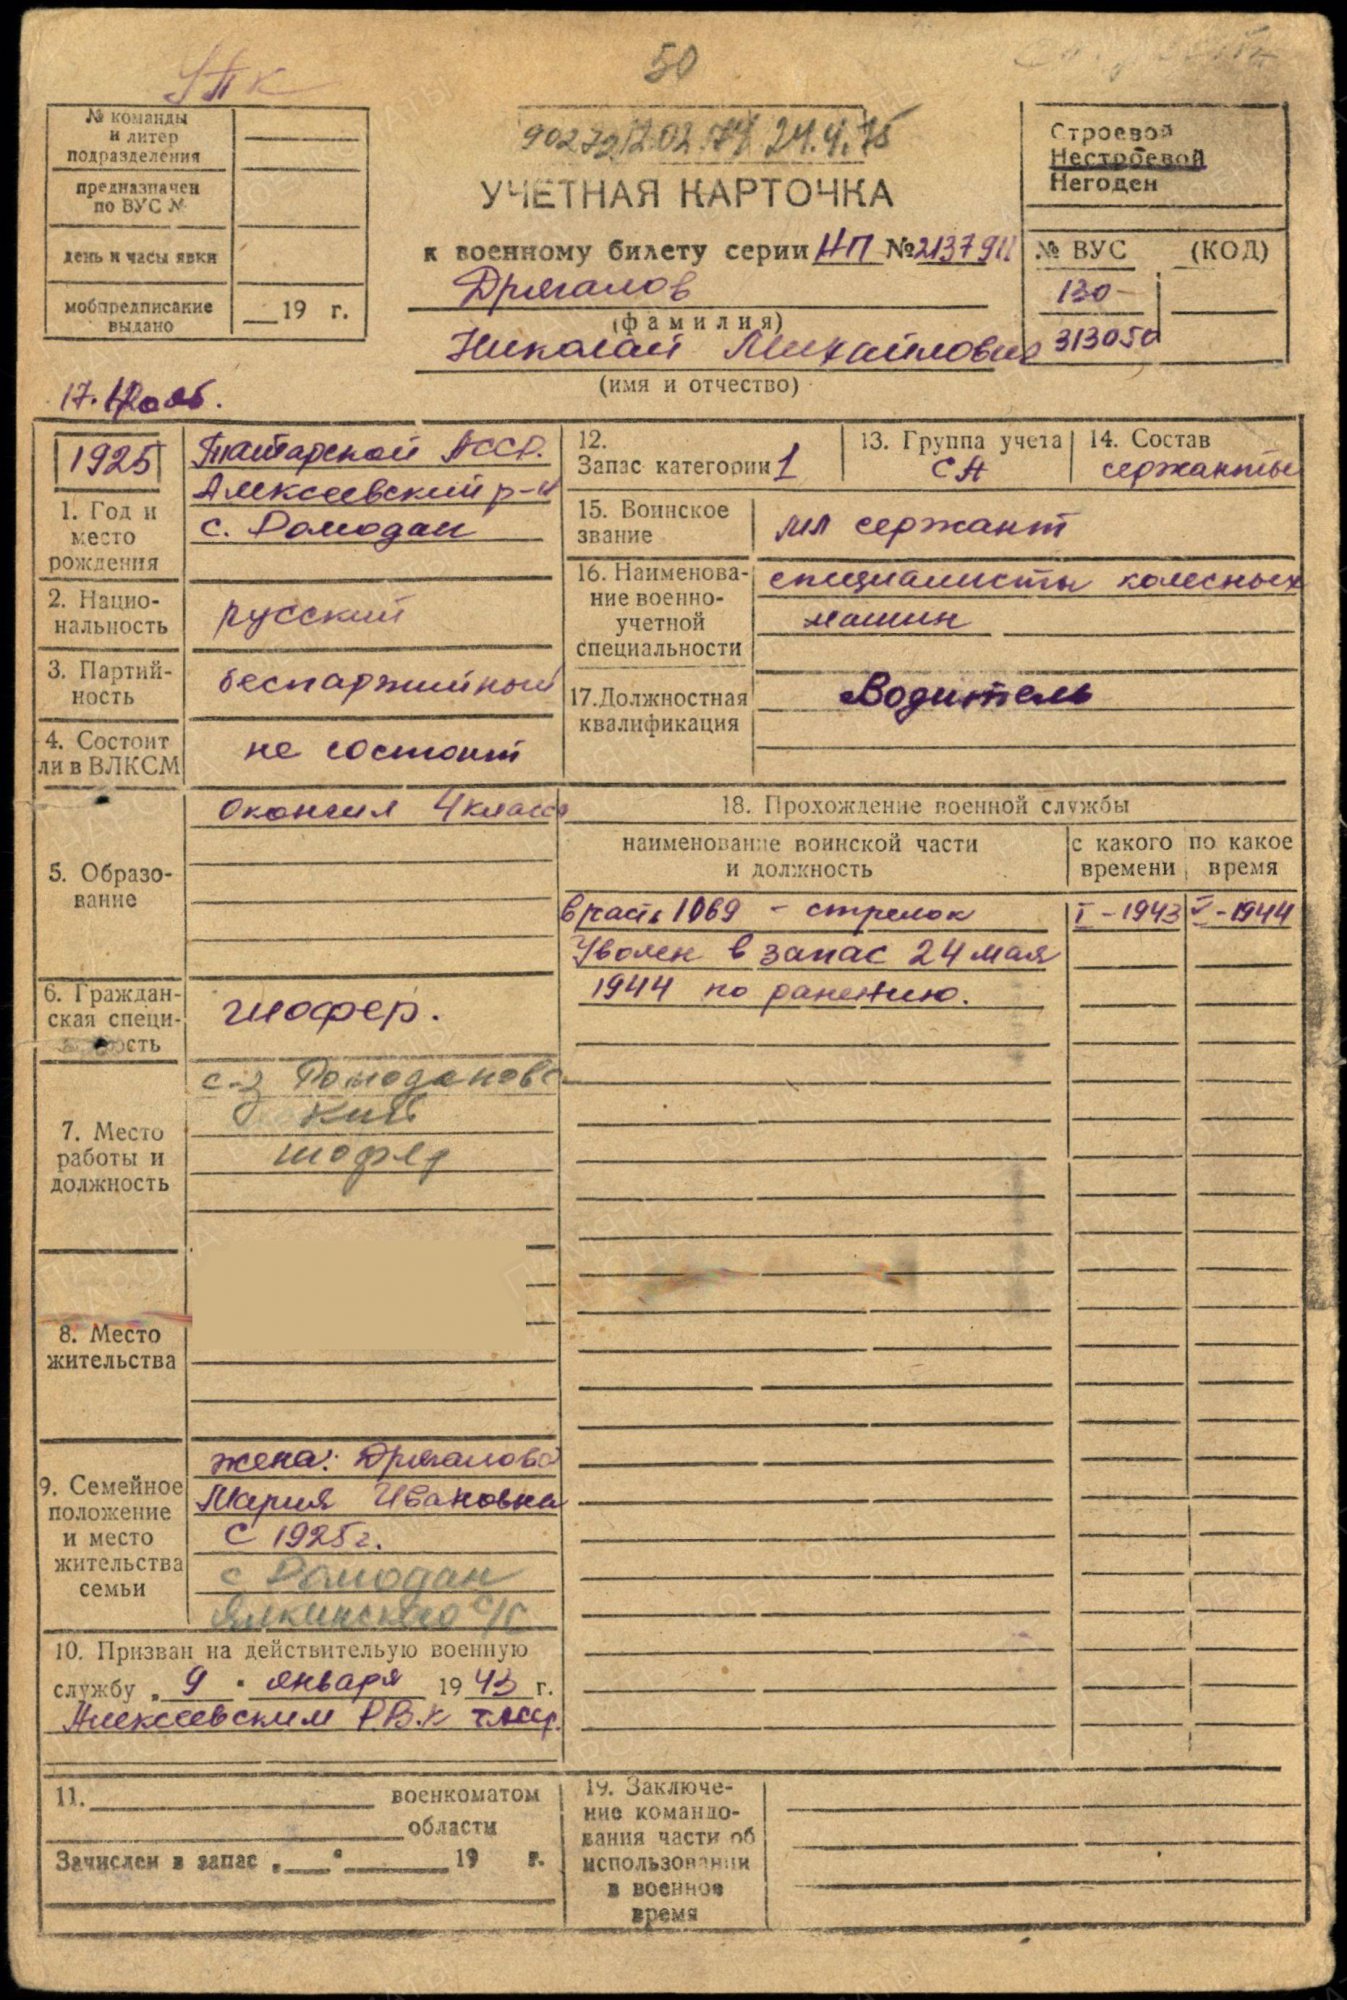 УПК
50
№ команды
и литер
подразделения
предназначен
по ВУС №
день и часы явки
мобпредписание
выдано
19 г.
24.4.75
УЧЕТНАЯ КАРТОЧКА
к военному билету серии НП №2137911
Дрягалов
(фамилия)
Николай Михайлович
(имя и отчество)
Строевой
Нестроевой
Негоден
№ ВУС (КОД)
130-
313050
17. нояб.
1925
1. Год и
место
рождения
Татарской АССР.
Алексеевский р-н
с. Ромодан
2. Нацио-
нальность
русский
3. Партий-
ность
беспартийный
4. Состоит
ли в ВЛКСМ
не состоит
5. Образо-
вание
Окончил 4 класса
6. Граждан-
ская специ-
ость
шофер.
7. Место
работы и
должность
с-з Ромодановс
кий
шофер
8. Место
жительства
9. Семейное
положение
и место
жительства
семьи
жена: Дрягалова
Мария Ивановна
с 1925г.
с Ромодан
Ялкинского с/с
10. Призван на действительую военную
службу „ 9 " января 19 43 г.
Алексеевским РВК ТАССР.
11. военкоматом
области
Зачислен в запас „ " 19 г.
12.
Запас категории 1
13. Группа учета
СА
14. Состав
сержанты
15. Воинское
звание
мл сержант
16. Наименова-
ние военно-
учетной
специальности
специалисты колесных
машин
17.Должностная
квалификация
Водитель
18. Прохождение военной службы
наименование воинской части
и должность
с какого
времени
по какое
время
в часть 1069 - стрелок I-1943 V-1944
Уволен в запас 24 мая
1944 по ранению.
19. Заключе-
ние командо-
вания части об
использовании
в военное
время